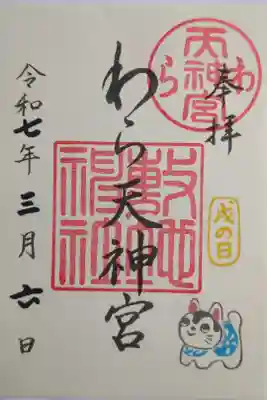 奉拝
わら天神宮
わら天神宮
敷地神社
戌の日
令和七年三月六日